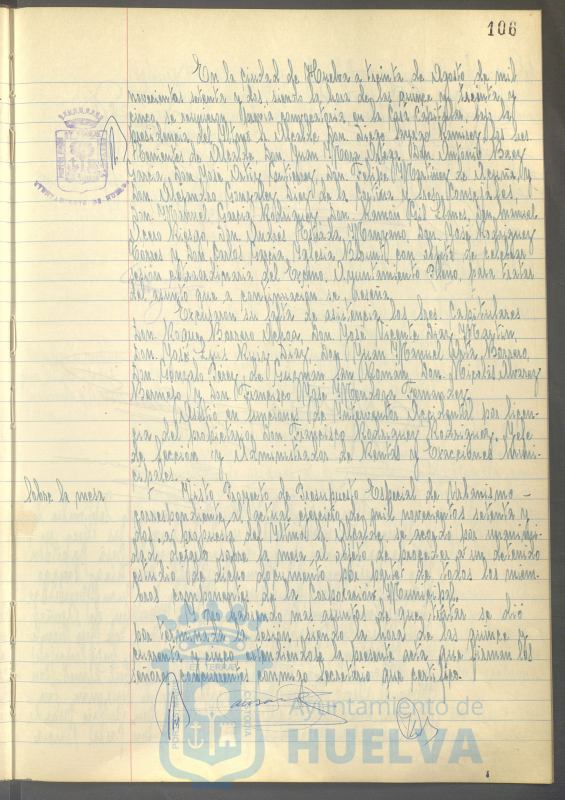 106
En la ciudad de Huelva a treinta de Agosto de mil
novecientos setenta y dos, siendo la hora de las quince y treinta y
cinco se reunieron previa convocatoria en la Casa Capitular bajo la
presidencia del Iltmo Sr Alcalde Don Diego Ramirez los Sres
Tenientes de Alcalde Don Juan Don Antonio Baez
Garcia, Don José Ortiz Don Felipe Martinez de Acuña y
Don Alejandro Gonzalez de la y Sres Consejales,
Don Manuel Garcia Rodriguez, Don Ramón Gil Don Manuel
Don Andrés Estrada Don José Rodriguez
Torres y Don Carlos Garcia con objeto de celebrar
sesión extraordinaria del Excmo. Ayuntamiento Pleno, para tratar
del asunto que a continuación se reseña.
Excusaron su falta de asistencia los Sres. Capitulares
Don Roque Barrero Ochoa, Don José Vicente Diaz Martin,
Don José Luis Ruiz Diaz, Don Juan Manuel Borrero,
Don Gonzalo Perez de Guzmán San Román, Don Alvarez
Bermejo y Don Francisco José Mendoza Fernandez.
Asistió en funciones de Interventor Accidental por licen-
cia del propietario, Don Francisco Rodriguez Rodriguez, Jefe
de Sección y Administrador de Rentas y Exacciones Muni-
cipales.
Sobre la mesa
Visto Proyecto de Presupuesto Especial de Urbanismo
correspondiente al actual ejercicio de mil novecientos setenta y
dos, a propuesta del Iltmo. Sr. Alcalde se acordó por unanimi-
dad dejarlo sobre la mesa al objeto de proceder a un detenido
estudio de dicho documento por parte de todos los miem-
bros componentes de la Corporación Municipal.
Y no habiendo mas asuntos de que tratar se dió
por terminada la sesión, siendo la hora de las quince y
cuarenta y cinco, extendiendose la presente acta que firman los
señores concurrentes conmigo Secretario que certifico.
Ayuntamiento de
HUELVA